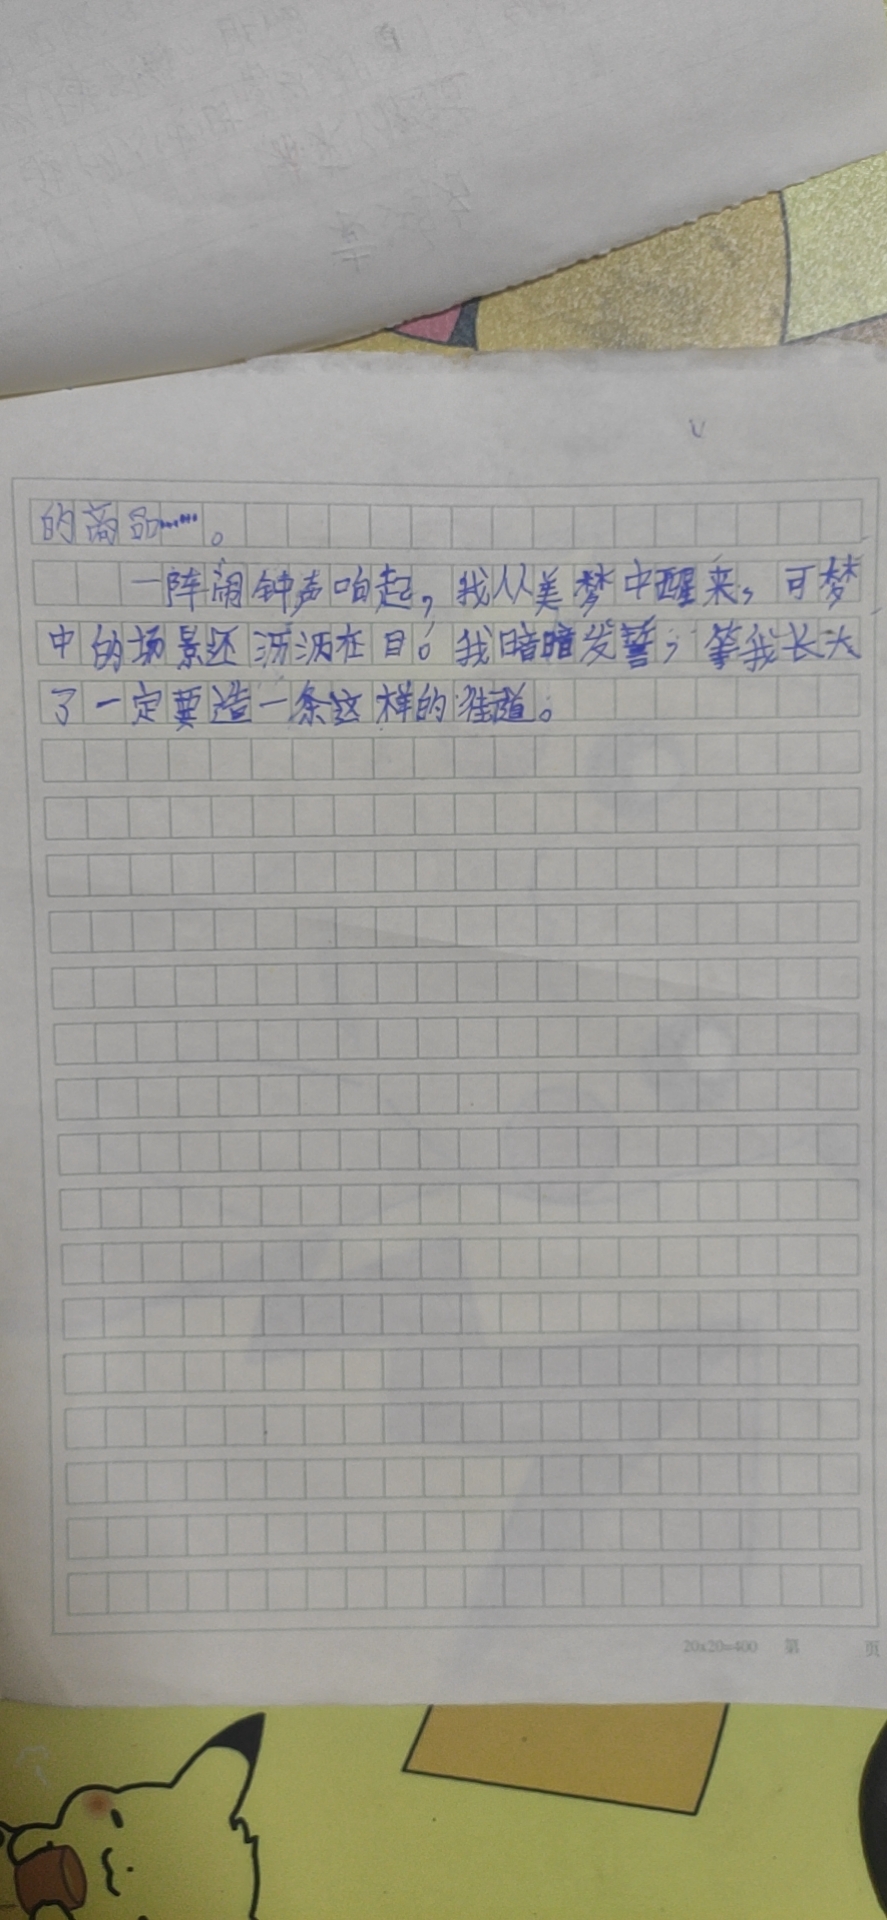 的商品……。
一阵闹钟声响起，我从美梦中醒来，可梦
中的场景还历历在目。我暗暗发誓，等我长大
了一定要造一条这样的隧道。
20x20=400 第 页